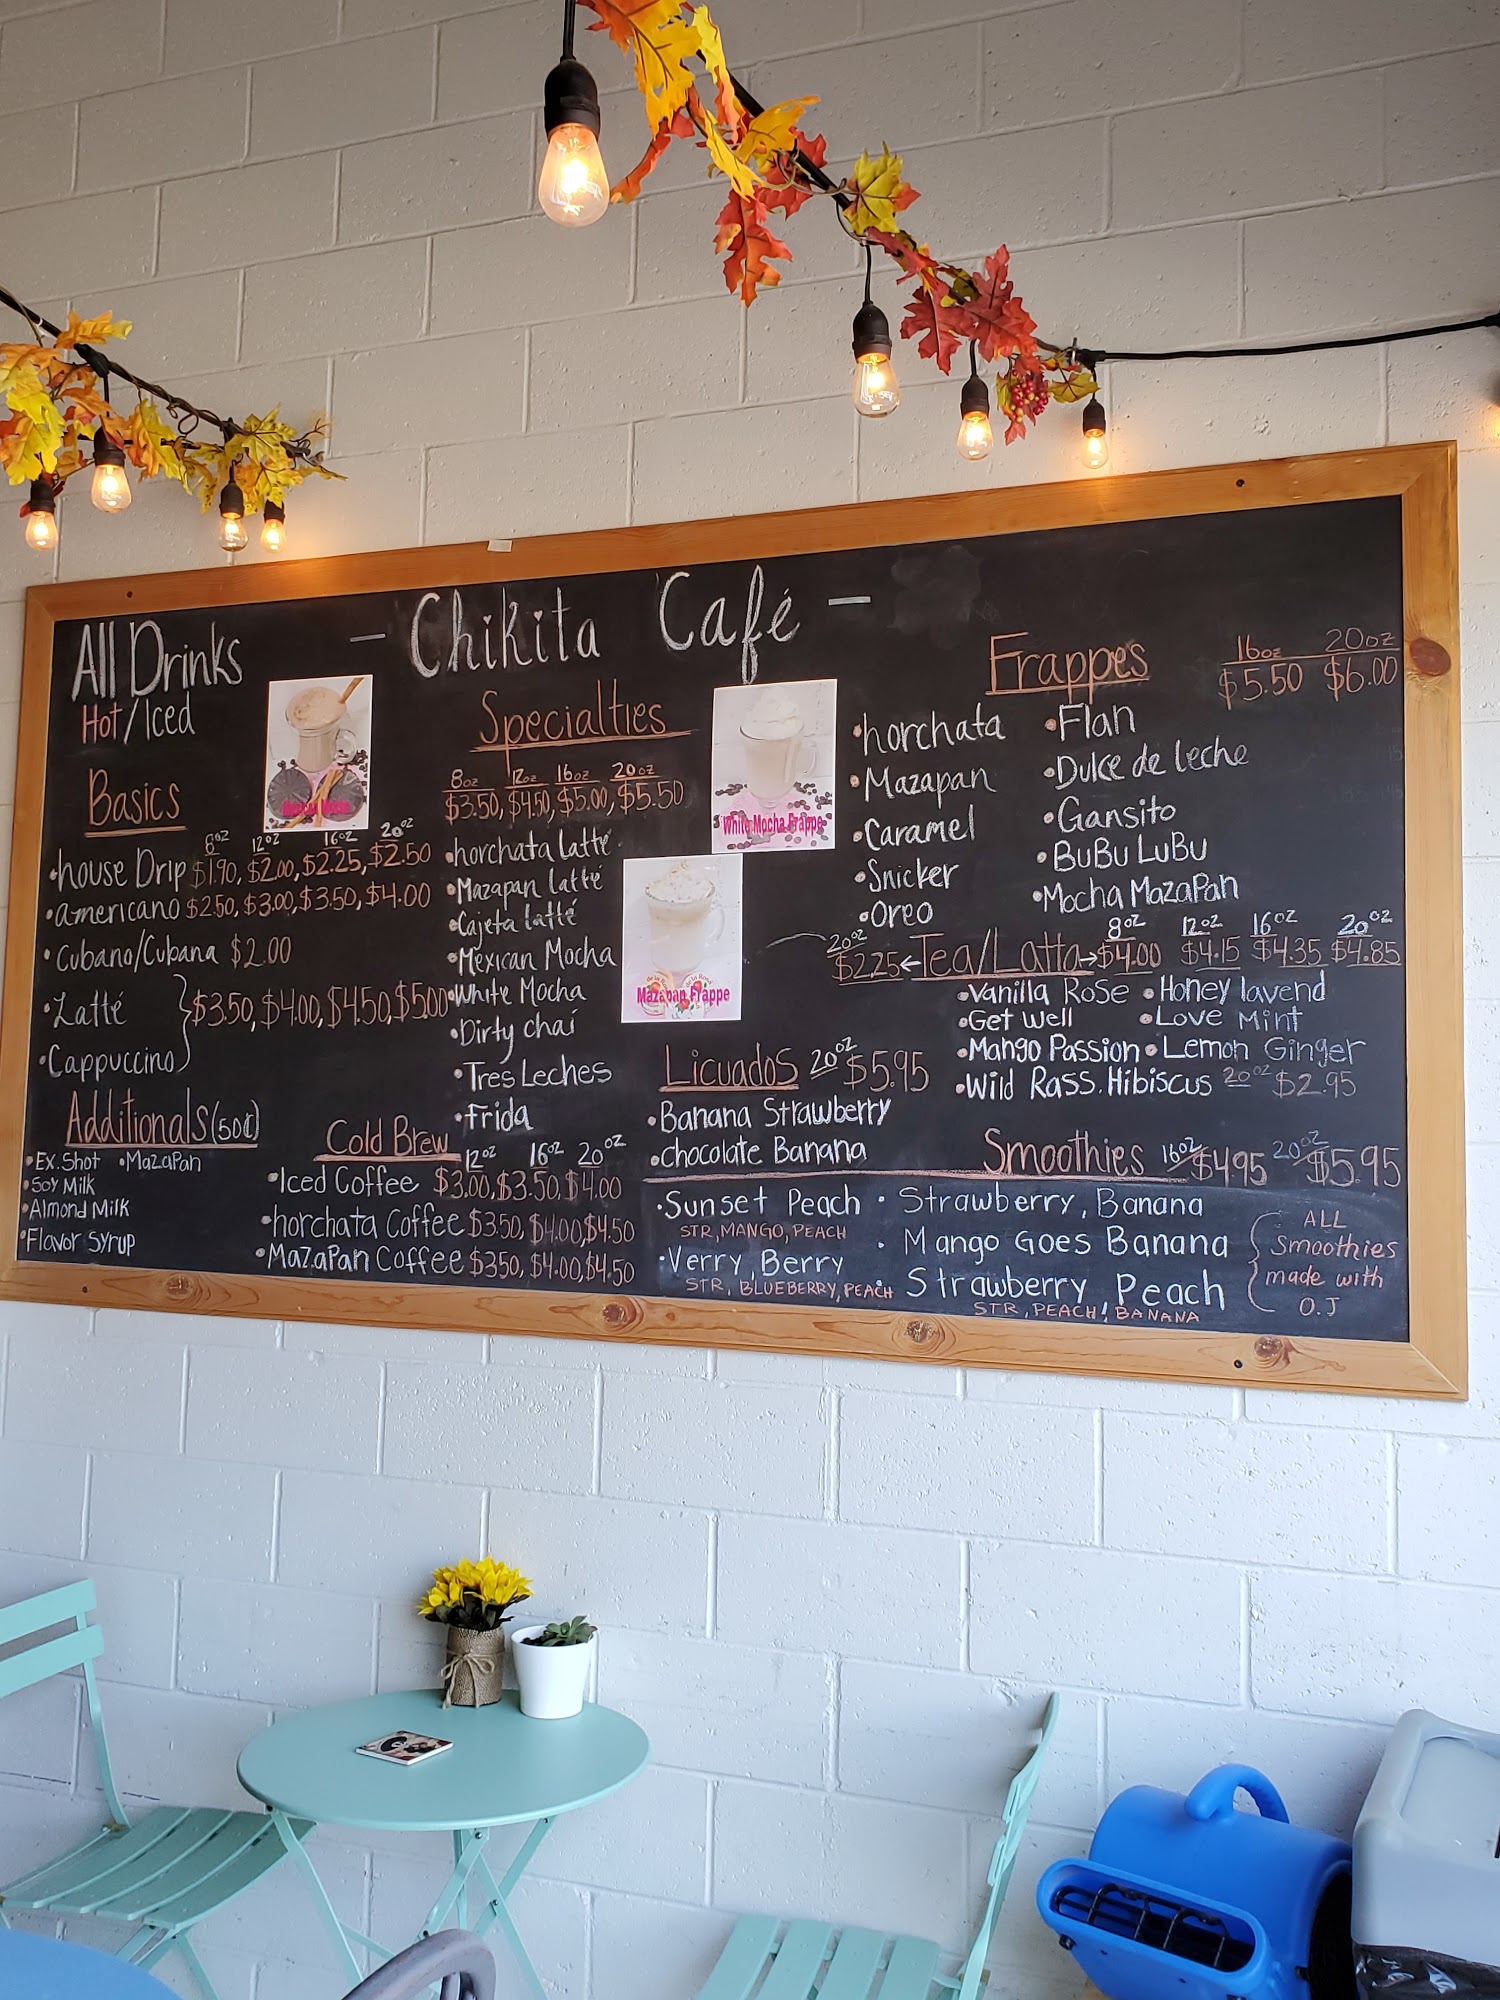 - Chikita Café -
All Drinks
Hot/Iced
Basics
8oz 12oz 16oz 20oz
•house Drip $1.90, $2.00, $2.25, $2.50
•americano $2.50, $3.00, $3.50, $4.00
•Cubano/Cubana $2.00
•Latté
•Cappuccino
} $3.50, $4.00, $4.50, $5.00
Additionals (50¢)
•Ex. Shot •Mazapan
•Soy Milk
•Almond Milk
•Flavor Syrup
Specialties
8oz 12oz 16oz 20oz
$3.50, $4.50, $5.00, $5.50
•horchata latté
•Mazapan latté
•Cajeta latté
•Mexican Mocha
•White Mocha
•Dirty chai
•Tres Leches
•Frida
Cold Brew
12oz 16oz 20oz
•Iced Coffee $3.00, $3.50, $4.00
•horchata Coffee $3.50, $4.00, $4.50
•Mazapan Coffee $3.50, $4.00, $4.50
White Mocha Frappe
de la Rosa de la Rosa
Mazapan Frappe
Frappes
16oz 20oz
$5.50 $6.00
•horchata •Flan
•Mazapan •Dulce de leche
•Caramel •Gansito
•Snicker •BuBu LuBu
•Oreo •Mocha Mazapan
20oz $2.25 ← Tea/Latta → 8oz 12oz 16oz 20oz
$4.00 $4.15 $4.35 $4.85
•Vanilla Rose •Honey lavend
•Get well •Love Mint
•Mango Passion •Lemon Ginger
•Wild Rass. Hibiscus 20oz $2.95
Licuados 20oz $5.95
•Banana Strawberry
•chocolate Banana
Smoothies 16oz $4.95 20oz $5.95
•Sunset Peach
STR, MANGO, PEACH
•Verry Berry
STR, BLUEBERRY, PEACH
•Strawberry, Banana
•Mango Goes Banana
Strawberry Peach
STR, PEACH, BANANA
ALL
Smoothies
made with
O.J